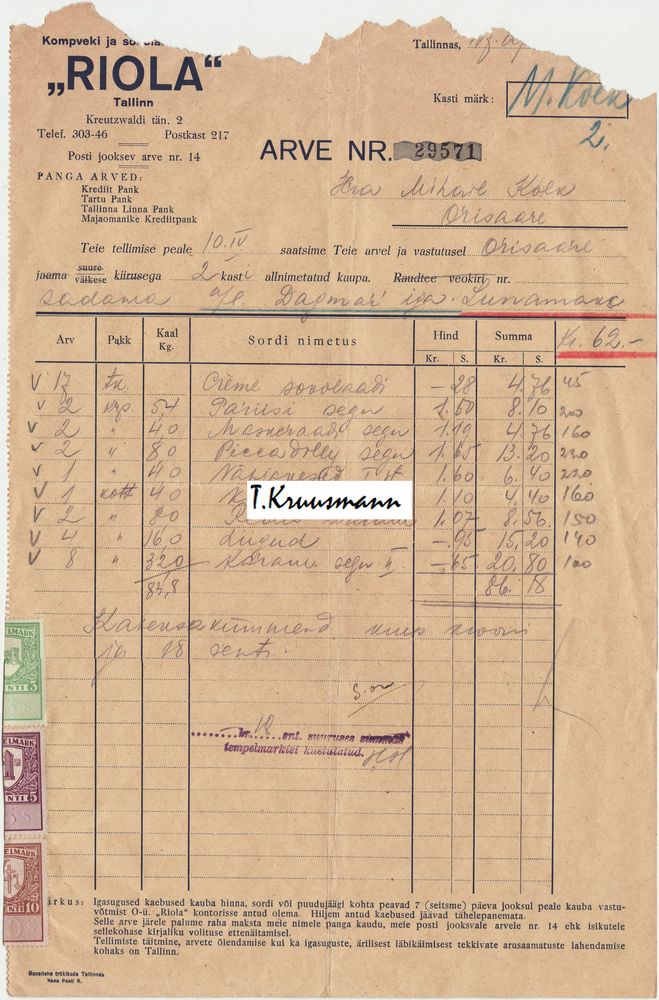 Kompveki ja
„RIOLA“
Tallinn
Kreutzwaldi tän. 2
Telef. 303-46 Postkast 217
Posti jooksev arve nr. 14
PANGA ARVED:
Krediit Pank
Tartu Pank
Tallinna Linna Pank
Majaomanike Krediitpank
Tallinnas,
Kasti märk: M. Koen
2.
ARVE NR. 29571
Hra Mihail Koen
Orisaare
Teie tellimise peale 10.IV saatsime Teie arvel ja vastutusel Orisaare
jaama suure väikese kiirusega 2 kasti allnimetatud kaupa. Raudtee veokiri nr.
sadama a/l. Dagmar iga
Kr. 62.-
Arv Pakk Kaal Kg. Sordi nimetus Hind Kr. S. Summa Kr. S.
V 17 tk. Crème sokolaadi –28 4.76 45
V 2 krp 54 Pariisi segu 1.50 8.10 200
V 2 " 40 Maskeraadi segu 1.19 4.76 160
V 2 " 80 Piccadolly segu 1.65 13.20 230
V 1 " 40 1.60 6.40 220
V 1 kott 40 1.10 4.40 160
T.Kruusmann
V 2 " 80 1.07 8.56 150
V 4 " 160 –95 15.20 140
V 8 " 320 Karam. segu II –.65 20.80 100
83,8 86.18
Kaheksakümmend kuus krooni
ja 18 senti.
18 snt. suuruses summas
tempelmarktei kustutatud.
SENTI 5
SENTI 5
SENTI 10
Märkus: Igasugused kaebused kauba hinna, sordi või puudujäägi kohta peavad 7 (seitsme) päeva jooksul peale kauba vastu-
võtmist O-ü. „Riola“ kontorisse antud olema. Hiljem antud kaebused jäävad tähelepanemata.
Selle arve järele palume raha maksta meie nimele panga kaudu, meie posti jooksvale arvele nr. 14 ehk isikutele
sellekohase kirjaliku volituse ettenäitamisel.
Tellimiste täitmine, arvete õiendamise kui ka igasuguste, ärilisest läbikäimisest tekkivate arusaamatuste lahendamise
kohaks on Tallinn.
Roosilehe trükikoda Tallinnas
Vana Posti 8.